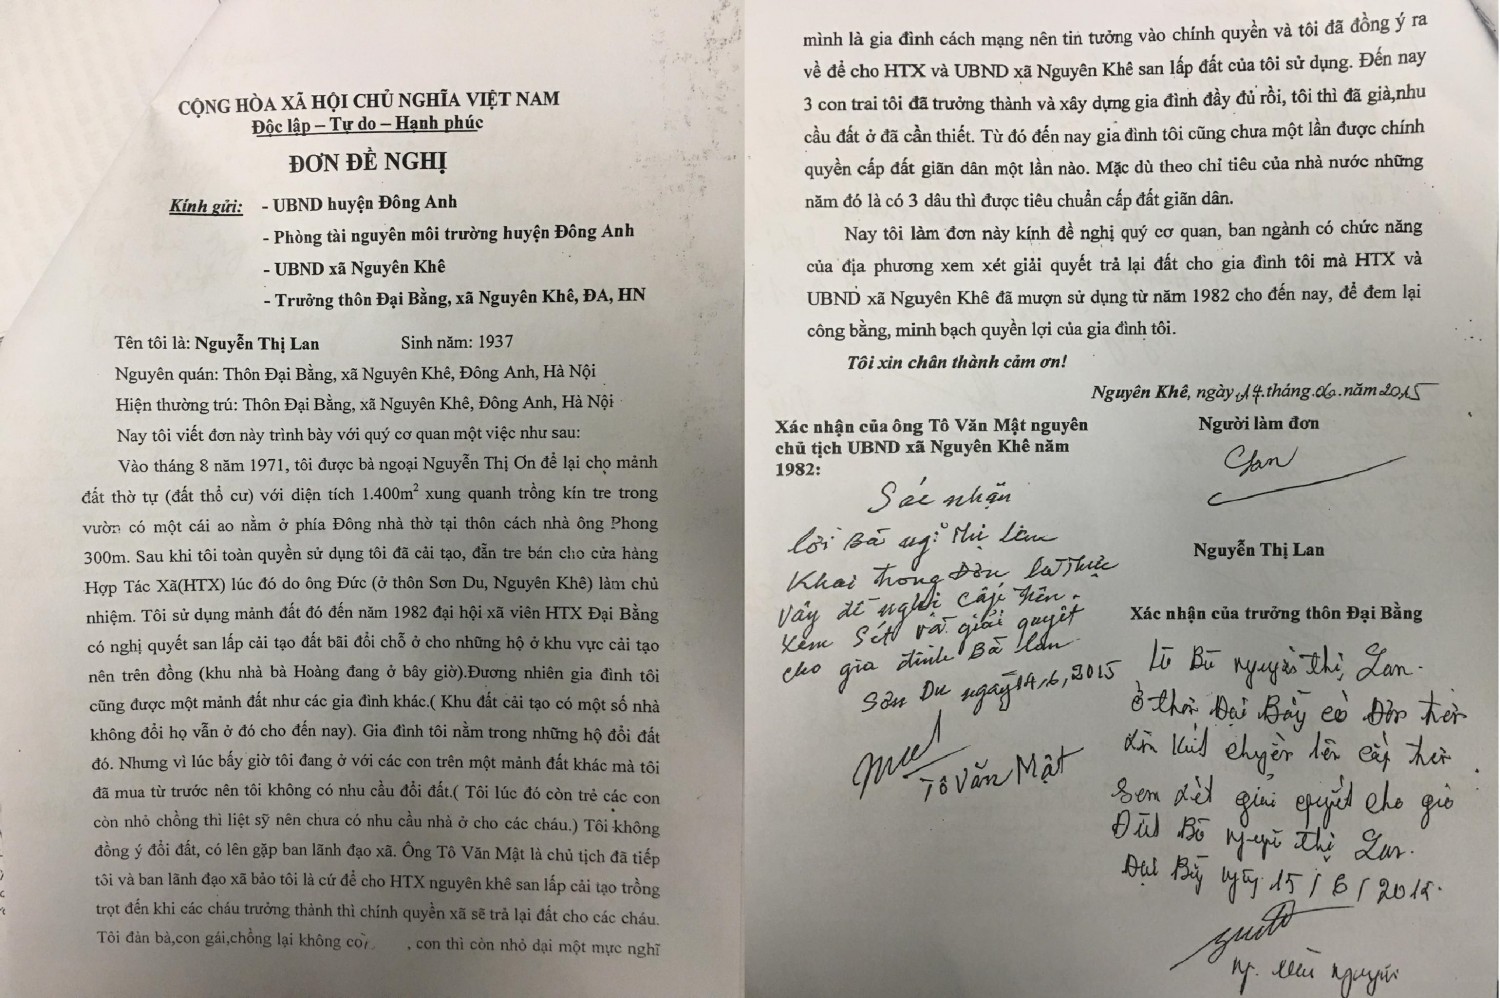 CỘNG HÒA XÃ HỘI CHỦ NGHĨA VIỆT NAM
Độc lập – Tự do – Hạnh phúc
ĐƠN ĐỀ NGHỊ
Kính gửi: - UBND huyện Đông Anh
- Phòng tài nguyên môi trường huyện Đông Anh
- UBND xã Nguyên Khê
- Trưởng thôn Đại Bằng, xã Nguyên Khê, ĐA, HN
Tên tôi là: Nguyễn Thị Lan Sinh năm: 1937
Nguyên quán: Thôn Đại Bằng, xã Nguyên Khê, Đông Anh, Hà Nội
Hiện thường trú: Thôn Đại Bằng, xã Nguyên Khê, Đông Anh, Hà Nội
Nay tôi viết đơn này trình bày với quý cơ quan một việc như sau:
Vào tháng 8 năm 1971, tôi được bà ngoại Nguyễn Thị Ơn để lại cho mảnh
đất thờ tự (đất thổ cư) với diện tích 1.400m2 xung quanh trồng kín tre trong
vườn có một cái ao nằm ở phía Đông nhà thờ tại thôn cách nhà ông Phong
300m. Sau khi tôi toàn quyền sử dụng tôi đã cải tạo, đẵn tre bán cho cửa hàng
Hợp Tác Xã(HTX) lúc đó do ông Đức (ở thôn Sơn Du, Nguyên Khê) làm chủ
nhiệm. Tôi sử dụng mảnh đất đó đến năm 1982 đại hội xã viên HTX Đại Bằng
có nghị quyết san lấp cải tạo đất bãi đổi chỗ ở cho những hộ ở khu vực cải tạo
nên trên đồng (khu nhà bà Hoàng đang ở bây giờ).Đương nhiên gia đình tôi
cũng được một mảnh đất như các gia đình khác.( Khu đất cải tạo có một số nhà
không đổi họ vẫn ở đó cho đến nay). Gia đình tôi nằm trong những hộ đổi đất
đó. Nhưng vì lúc bấy giờ tôi đang ở với các con trên một mảnh đất khác mà tôi
đã mua từ trước nên tôi không có nhu cầu đổi đất.( Tôi lúc đó còn trẻ các con
còn nhỏ chồng thì liệt sỹ nên chưa có nhu cầu nhà ở cho các cháu.) Tôi không
đồng ý đổi đất, có lên gặp ban lãnh đạo xã. Ông Tô Văn Mật là chủ tịch đã tiếp
tôi và ban lãnh đạo xã bảo tôi là cứ để cho HTX nguyên khê san lấp cải tạo trồng
trọt đến khi các cháu trưởng thành thì chính quyền xã sẽ trả lại đất cho các cháu.
Tôi đàn bà,con gái,chồng lại không còn , con thì còn nhỏ dại một mực nghĩ
mình là gia đình cách mạng nên tin tưởng vào chính quyền và tôi đã đồng ý ra
về để cho HTX và UBND xã Nguyên Khê san lấp đất của tôi sử dụng. Đến nay
3 con trai tôi đã trưởng thành và xây dựng gia đình đầy đủ rồi, tôi thì đã già,nhu
cầu đất ở đã cần thiết. Từ đó đến nay gia đình tôi cũng chưa một lần được chính
quyền cấp đất giãn dân một lần nào. Mặc dù theo chỉ tiêu của nhà nước những
năm đó là có 3 dâu thì được tiêu chuẩn cấp đất giãn dân.
Nay tôi làm đơn này kính đề nghị quý cơ quan, ban ngành có chức năng
của địa phương xem xét giải quyết trả lại đất cho gia đình tôi mà HTX và
UBND xã Nguyên Khê đã mượn sử dụng từ năm 1982 cho đến nay, để đem lại
công bằng, minh bạch quyền lợi của gia đình tôi.
Tôi xin chân thành cảm ơn!
Nguyên Khê, ngày 14 tháng 06 năm 2015
Xác nhận của ông Tô Văn Mật nguyên
chủ tịch UBND xã Nguyên Khê năm
1982:
Sác nhận
lời Bà ngT Thị Lan
Khai trong Đơn là thực
Vậy đề nghị Cấp trên
xem sét và giải quyết
cho gia đình Bà Lan
Sơn Du ngày 14, 6, 2015
Tô Văn Mật
Người làm đơn
Lan
Nguyễn Thị Lan
Xác nhận của trưởng thôn Đại Bằng
Bà Nguyễn thị Lan.
ở thôn Đại Bằng có Đơn trên
chuyển lên cấp trên
Sem xét giải quyết cho gia
Đình Bà Nguyễn thị Lan.
Đại Bằng ngày 15 / 6 / 2015.